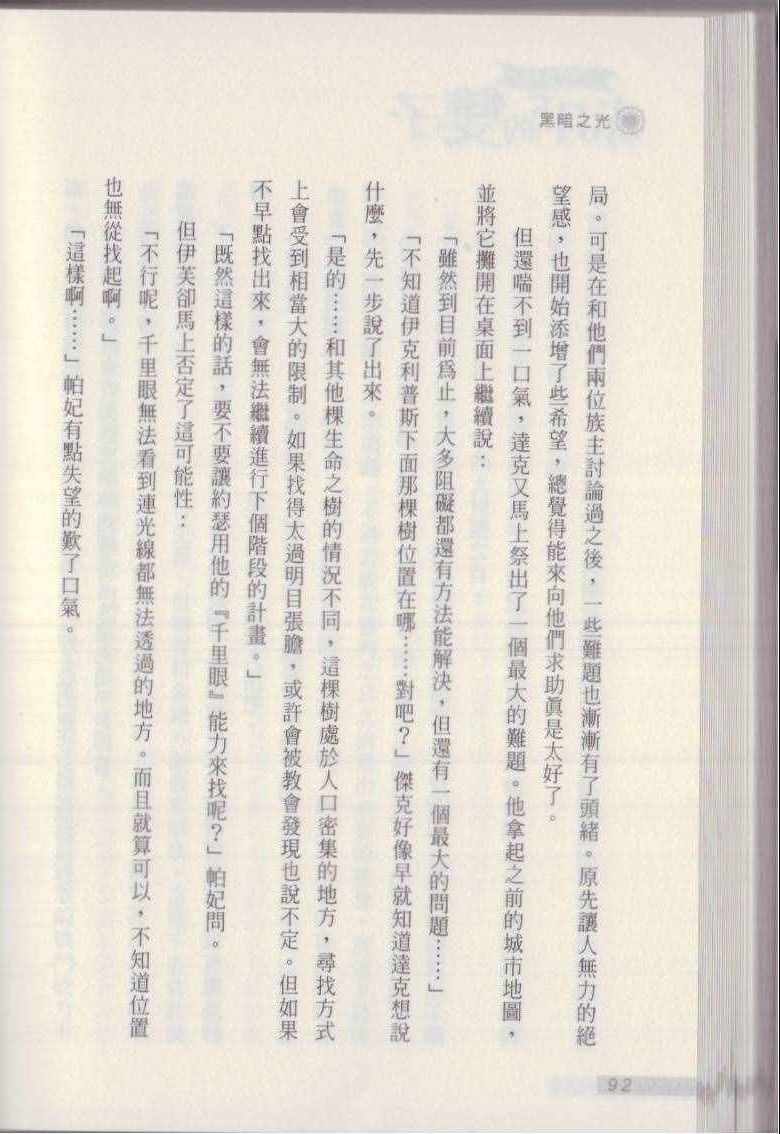 黑暗之光
局。可是在和他們兩位族主討論過之後，一些難題也漸漸有了頭緒。原先讓人無力的絕
望感，也開始添增了些希望，總覺得能來向他們求助真是太好了。
但還喘不到一口氣，達克又馬上祭出了一個最大的難題。他拿起之前的城市地圖，
並將它攤開在桌面上繼續說：
「雖然到目前爲止，大多阻礙都還有方法能解決，但還有一個最大的問題……」
「不知道伊克利普斯下面那棵樹位置在哪……對吧？」傑克好像早就知道達克想說
什麼，先一步說了出來。
「是的……和其他棵生命之樹的情況不同，這棵樹處於人口密集的地方，尋找方式
上會受到相當大的限制。如果找得太過明目張膽，或許會被教會發現也說不定。但如果
不早點找出來，會無法繼續進行下個階段的計畫。」
「既然這樣的話，要不要讓約瑟用他的『千里眼』能力來找呢？」帕妃問。
但伊芙卻馬上否定了這可能性：
「不行呢，千里眼無法看到連光線都無法透過的地方。而且就算可以，不知道位置
也無從找起啊。」
「這樣啊……」帕妃有點失望的歎了口氣。
92